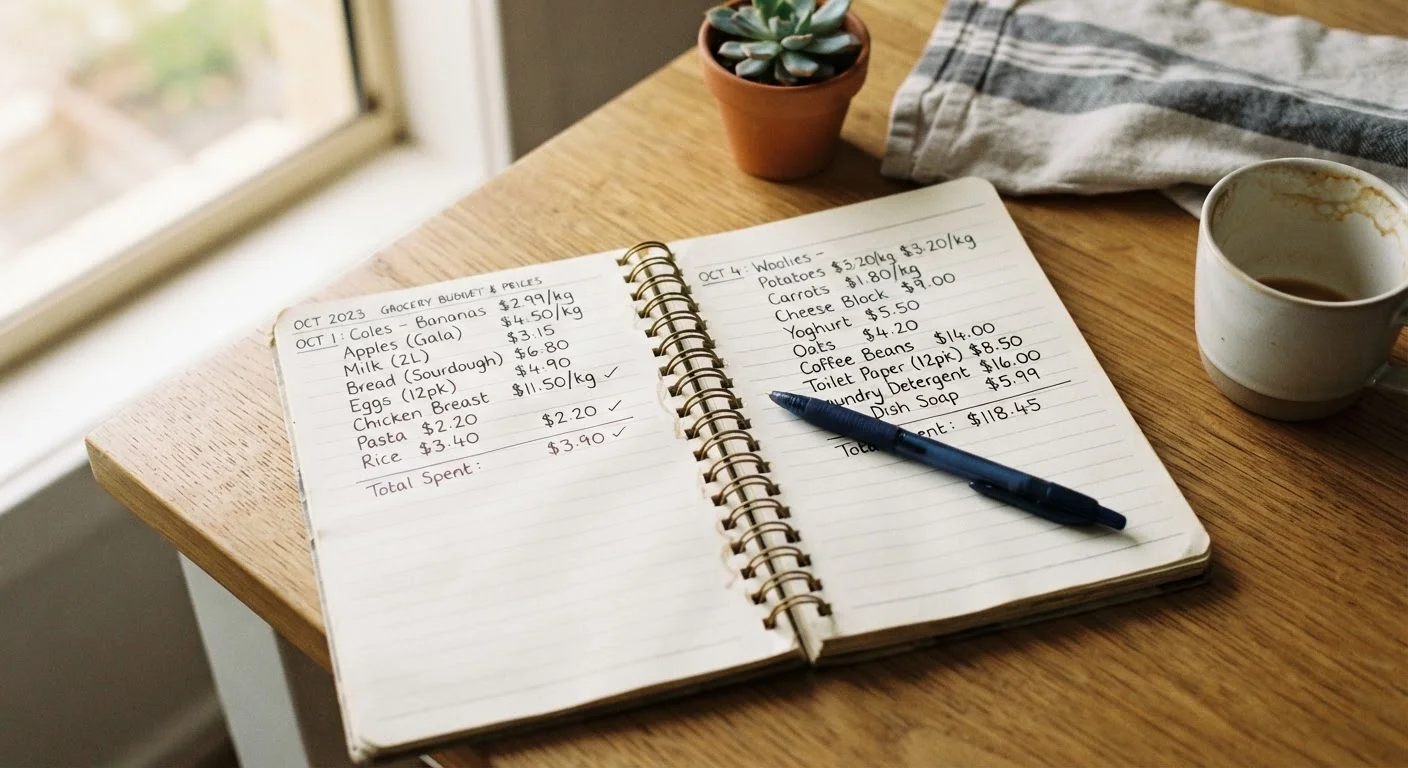 OCT 2023 GROCERY BUDGET & PRICES
OCT 1: Coles - Bananas $2.99/kg
Apples (Gala) $4.50/kg
Milk (2L) $3.15
Bread (Sourdough) $6.80
Eggs (12pk) $4.90
Chicken Breast $11.50/kg ✓
Pasta $2.20 $2.20 ✓
Rice $3.40 $3.90 ✓
Total Spent:
OCT 4: Woolies -
Potatoes $3.20/kg $3.20/kg
Carrots $1.80/kg
Cheese Block $9.00
Yoghurt $5.50
Oats $4.20
Coffee Beans $14.00
Toilet Paper (12pk) $8.50
undry Detergent $16.00
Dish Soap $5.99
Tota ent: $118.45